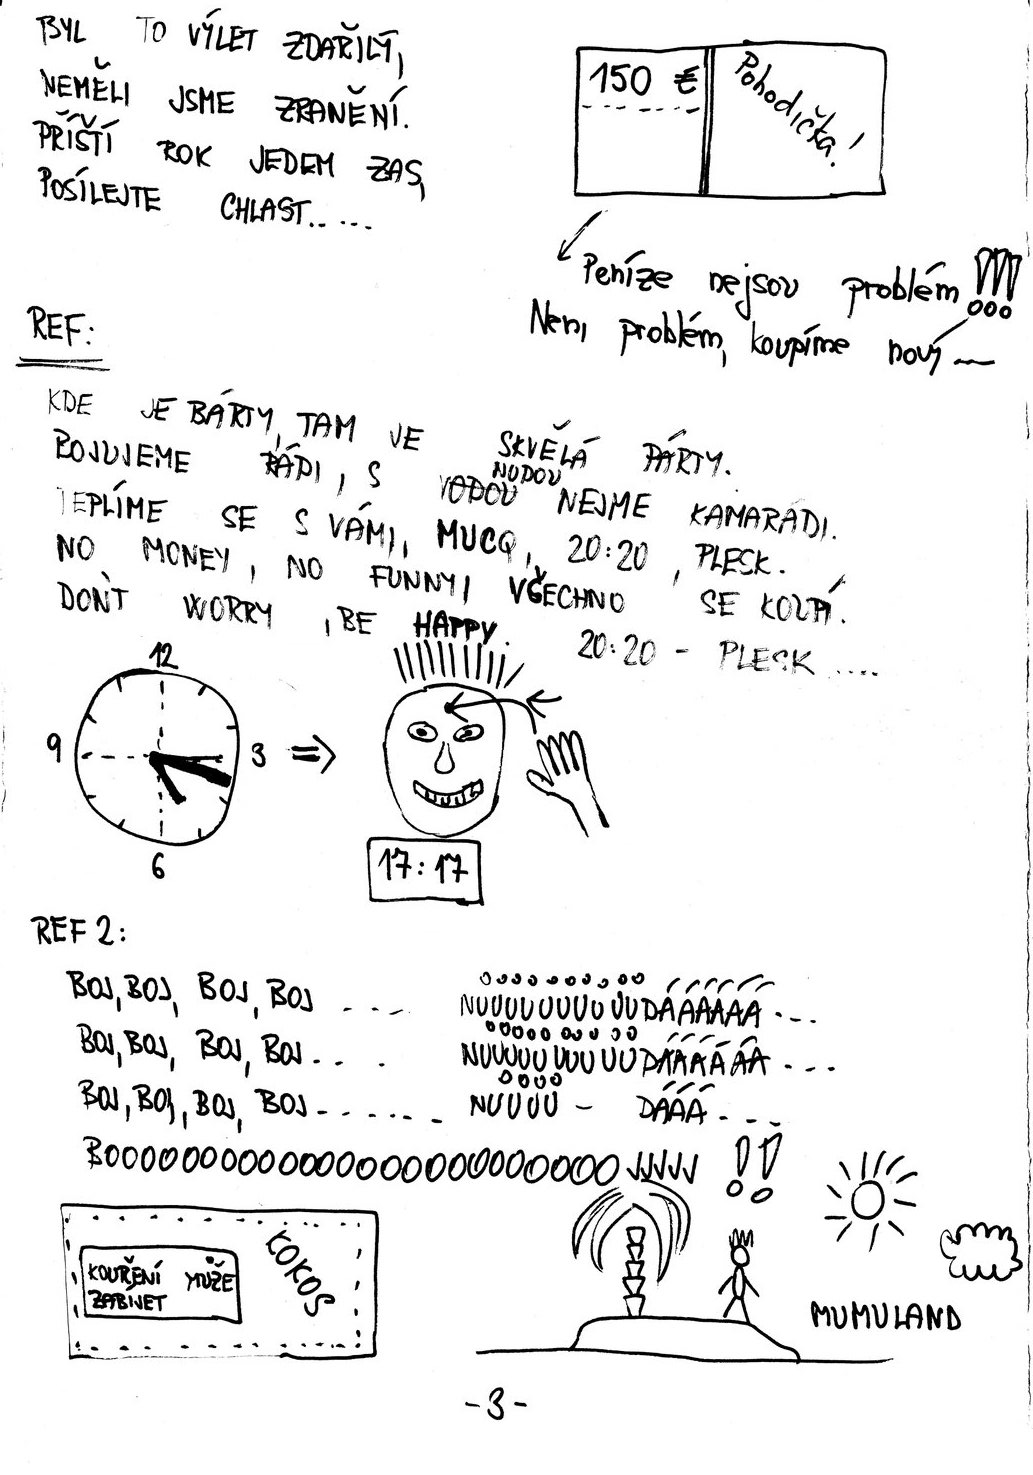 BYL TO VÝLET ZDAŘILÝ,
NEMĚLI JSME ZRANĚNÍ.
PŘÍŠTÍ ROK JEDEM ZAS,
POSÍLEJTE CHLAST.. ...
150 €
Pohodička!
Peníze nejsou problém !!!
Není problém, koupíme nový
REF:
KDE JE BÁRTY, TAM JE SKVĚLÁ PÁRTY.
BOJUJEME RÁDI, S VODOU NEJME KAMARÁDI.
NUDOU
TEPLÍME SE S VÁMI, MUCQ, 20:20, PLESK.
NO MONEY, NO FUNNY, VŠECHNO SE KOUPÍ.
DON'T WORRY, BE HAPPY. 20:20 - PLESK ....
12
9
3
6
17:17
REF 2:
BOJ, BOJ, BOJ, BOJ .... NŮŮŮŮŮŮŮŮŮDÁÁÁÁÁÁ ....
BOJ, BOJ, BOJ, BOJ... . NŮŮŮŮŮŮŮŮŮDÁÁÁÁÁÁ ...
BOJ, BOJ, BOJ, BOJ....... NŮŮŮŮ - DÁÁÁ ....
BOOOOOOOOOOOOOOOOOOOOOOOOOOOJJJJJ !!
KOUŘENÍ MŮŽE
ZABÍJET
KOKOS
MUMULAND
-3-